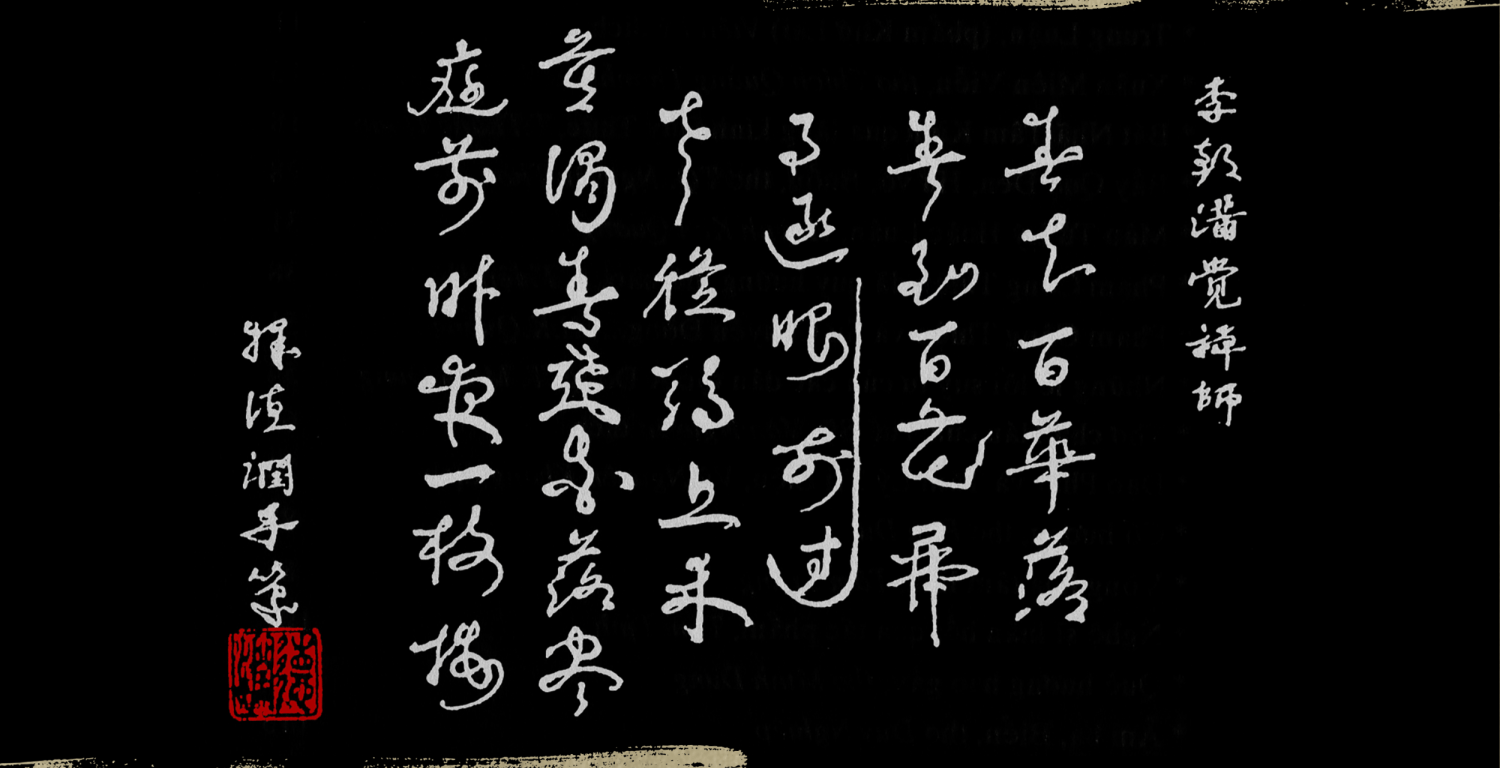 李朝滿覺禪師
春去百華落
春到百花開
事逐眼前過
老從頭上來
莫謂春殘花落盡
庭前昨夜一枝梅
釋德潤手筆